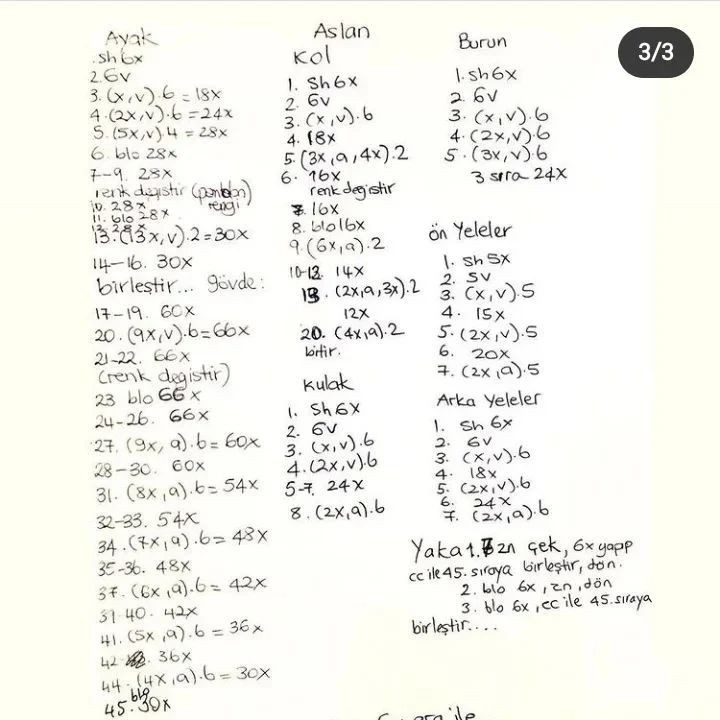 3/3
Aslan
Ayak
.sh6x
2.6v
3.(x,v).6=18x
4.(2x,v).6=24x
5.(5x,v)4=28x
6. blo 28x
7-9. 28x
renk degistir (pantolon rengi)
10. 28x
11. blo 28x
12. 28x
13.(13x,v).2=30x
14-16. 30x
birleştir... gövde:
17-19. 60x
20.(9x,v).6=66x
21-22. 66x
(renk degistir)
23 blo 66x
24-26. 66x
27.(9x,a).6=60x
28-30. 60x
31.(8x,a).6=54x
32-33. 54x
34.(7x,a).6=48x
35-36. 48x
37.(6x,a).6=42x
39-40. 42x
41.(5x,a).6=36x
42 36x
44.(4x,a).6=30x
45. blo 30x
Kol
1. Sh6x
2. 6v
3.(x,v).6
4. 18x
5.(3x,a,4x).2
6. 16x
renk degistir
7. 16x
8. blo16x
9.(6x,a).2
10-12. 14x
13.(2x,a,3x).2
12x
20.(4x,a).2
bitir.
Kulak
1. Sh6x
2. 6v
3.(x,v).6
4.(2x,v).6
5-7. 24x
8.(2x,a).6
Burun
1. sh6x
2. 6v
3.(x,v).6
4.(2x,v).6
5.(3x,v).6
3 sıra 24x
ön Yeleler
1. sh5x
2. 5v
3.(x,v).5
4. 15x
5.(2x,v).5
6. 20x
7.(2x,a).5
Arka Yeleler
1. Sh 6x
2. 6v
3.(x,v).6
4. 18x
5.(2x,v).6
6. 24x
7.(2x,a).6
Yaka 1. 7zn çek, 6x yapıp
cc ile 45. sıraya birleştir, dön.
2. blo 6x, zn, dön
3. blo 6x, cc ile 45.sıraya
birleştir....
ile